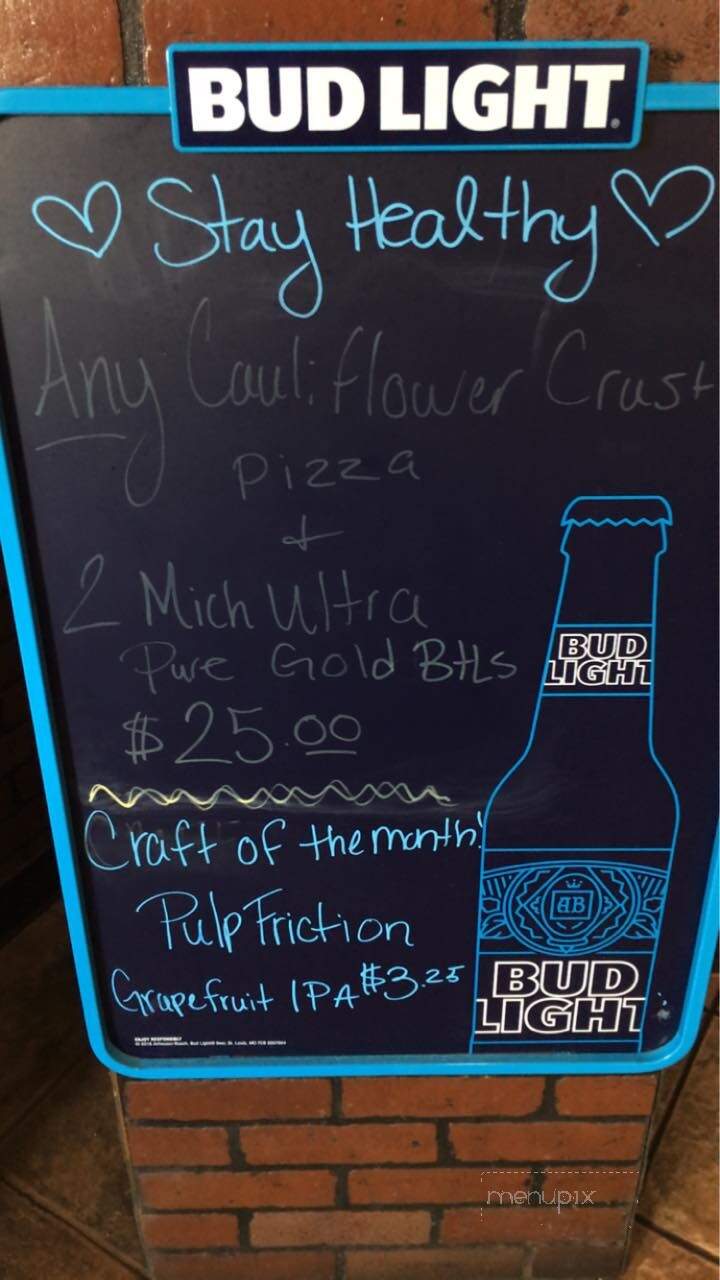 BUD LIGHT.
♡ Stay Healthy ♡
Any Cauliflower Crust
Pizza
+
2 Mich Ultra
Pure Gold Btls
$25.00
Craft of the month!
Pulp Friction
Grapefruit IPA $3.25
BUD
LIGHT
AB
BUD
LIGHT
ENJOY RESPONSIBLY
menupix